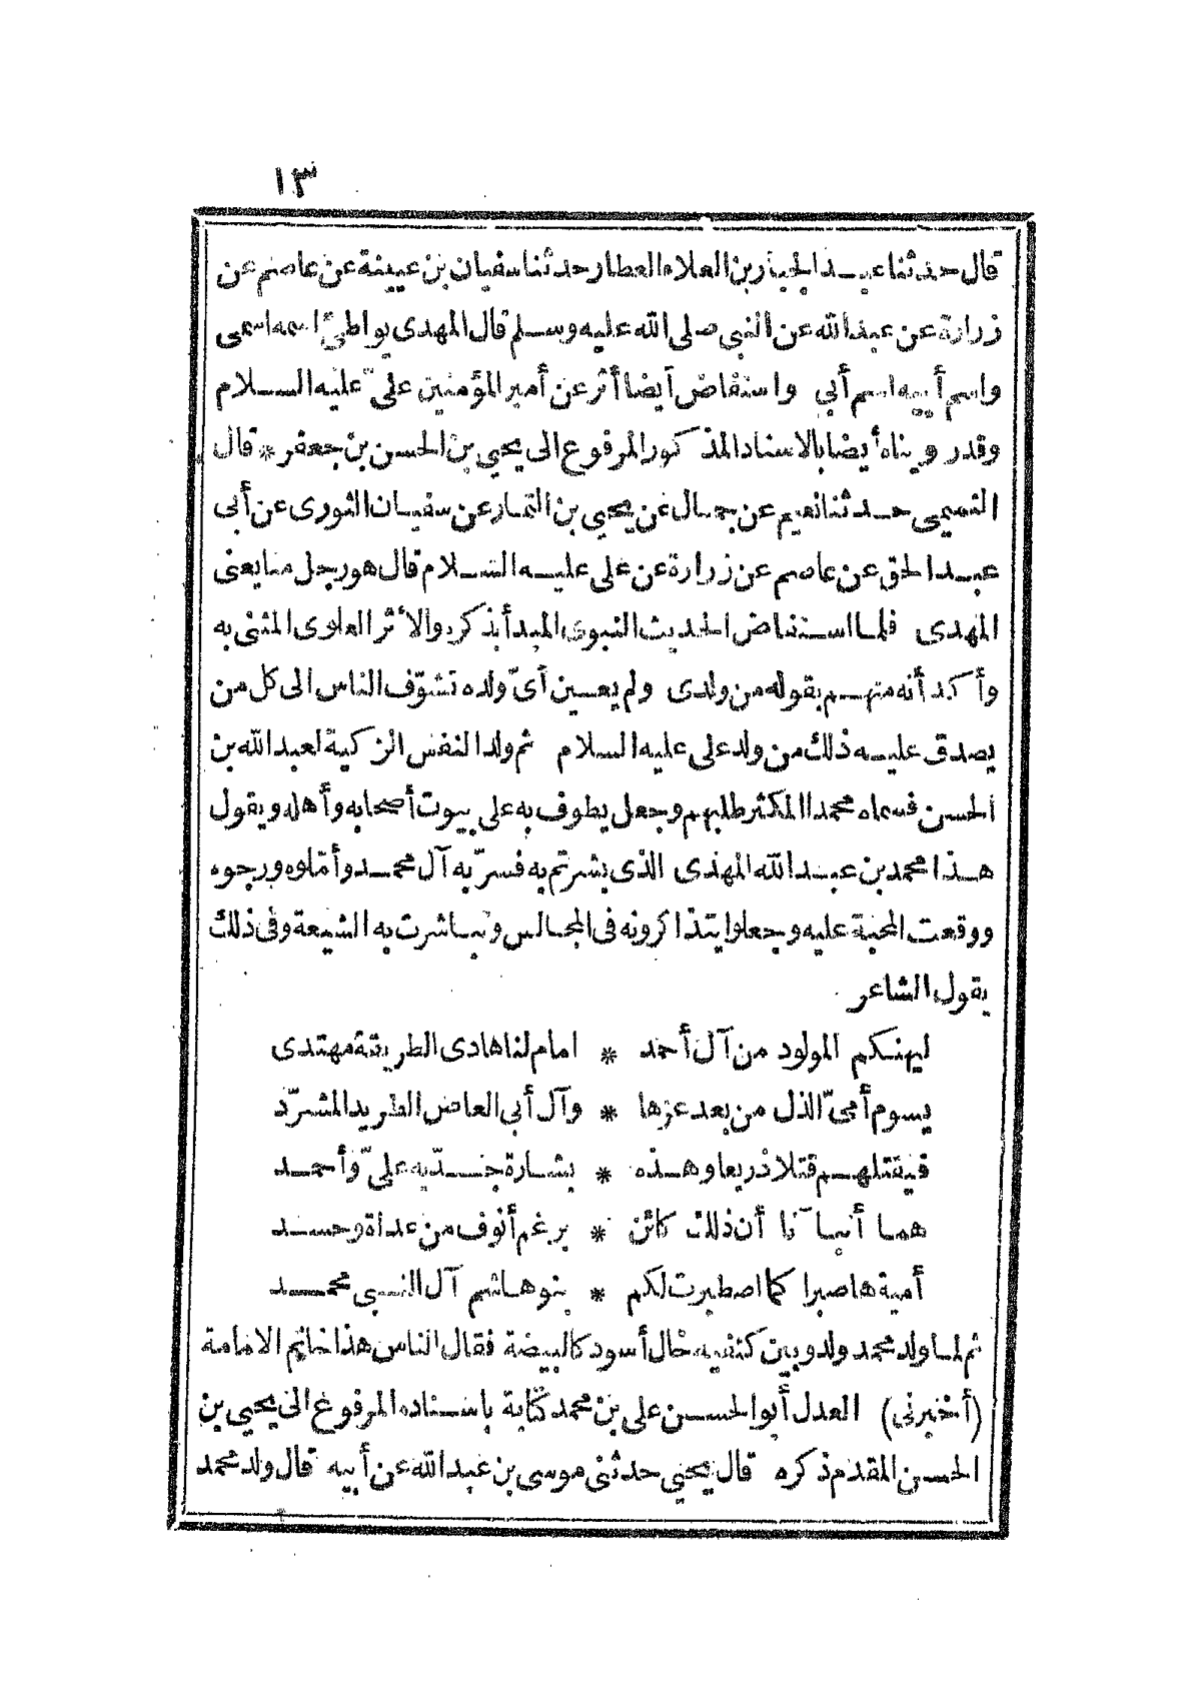 ١٣
قال حدثنا عبد الجبار بن العلاء العطار حدثنا سفيان بن عيينة عن عاصم عن
زرارة عن عبد الله عن النبي صلى الله عليه وسلم قال المهدى يواطئ اسمه اسمى
واسم أبيه اسم أبي واستفاض أيضا أثر عن أمير المؤمنين علىّ عليه السلام
وقدرويناه أيضا بالاسناد المذكور المرفوع الى يحيى بن الحسن بن جعفر * قال
التميمى حدثنا نعيم عن جمال عن يحيى بن التمار عن سفيان الثورى عن أبى
عبد الحق عن عاصم عن زرارة عن على عليه السلام قال هو رجل منا يعنى
المهدى فلما استفاض الحديث النبوى المبدأ بذكره والأثر العلوى المثنى به
وأكد أنه منهم بقوله من ولدى ولم يعين أىّ ولده تشوّف الناس الى كل من
يصدق عليه ذلك من ولد على عليه السلام ثم ولد النفس الزكية لعبد الله بن
الحسن فسماه محمدا المكثر طلبهم وجعل يطوف به على بيوت أصحابه وأهله ويقول
هذا محمد بن عبد الله المهدى الذى بشرتم به فسرّ به آل محمد وأمّلوه ورجوه
ووقعت المحبة عليه وجعلوا يتذاكرونه فى المجالس وتباشرت به الشيعة وفى ذلك
يقول الشاعر
ليهنكم المولود من آل أحمد * امام لنا هادى الطريقة مهتدى
يسوم أمىّ الذل من بعد عزها * وآل أبى العاص الطريد المشرّد
فيقتلهم قتلا ذريعا وهذه * بشارة جدّيه علىّ وأحمد
هما أنبآنا أن ذلك كائن * برغم أنوف من عداة وحسد
أمية ها صبرا كما اصطبرت لكم * بنو هاشم آل النبى محمد
ثم لما ولد محمد ولد وبين كتفيه خال أسود كالبيضة فقال الناس هذا خاتم الامامة
(أخبرنى) العدل أبو الحسن على بن محمد كتابة باسناده المرفوع الى يحيى بن
الحسن المقدم ذكره قال يحيى حدثنى موسى بن عبد الله عن أبيه قال ولد محمد